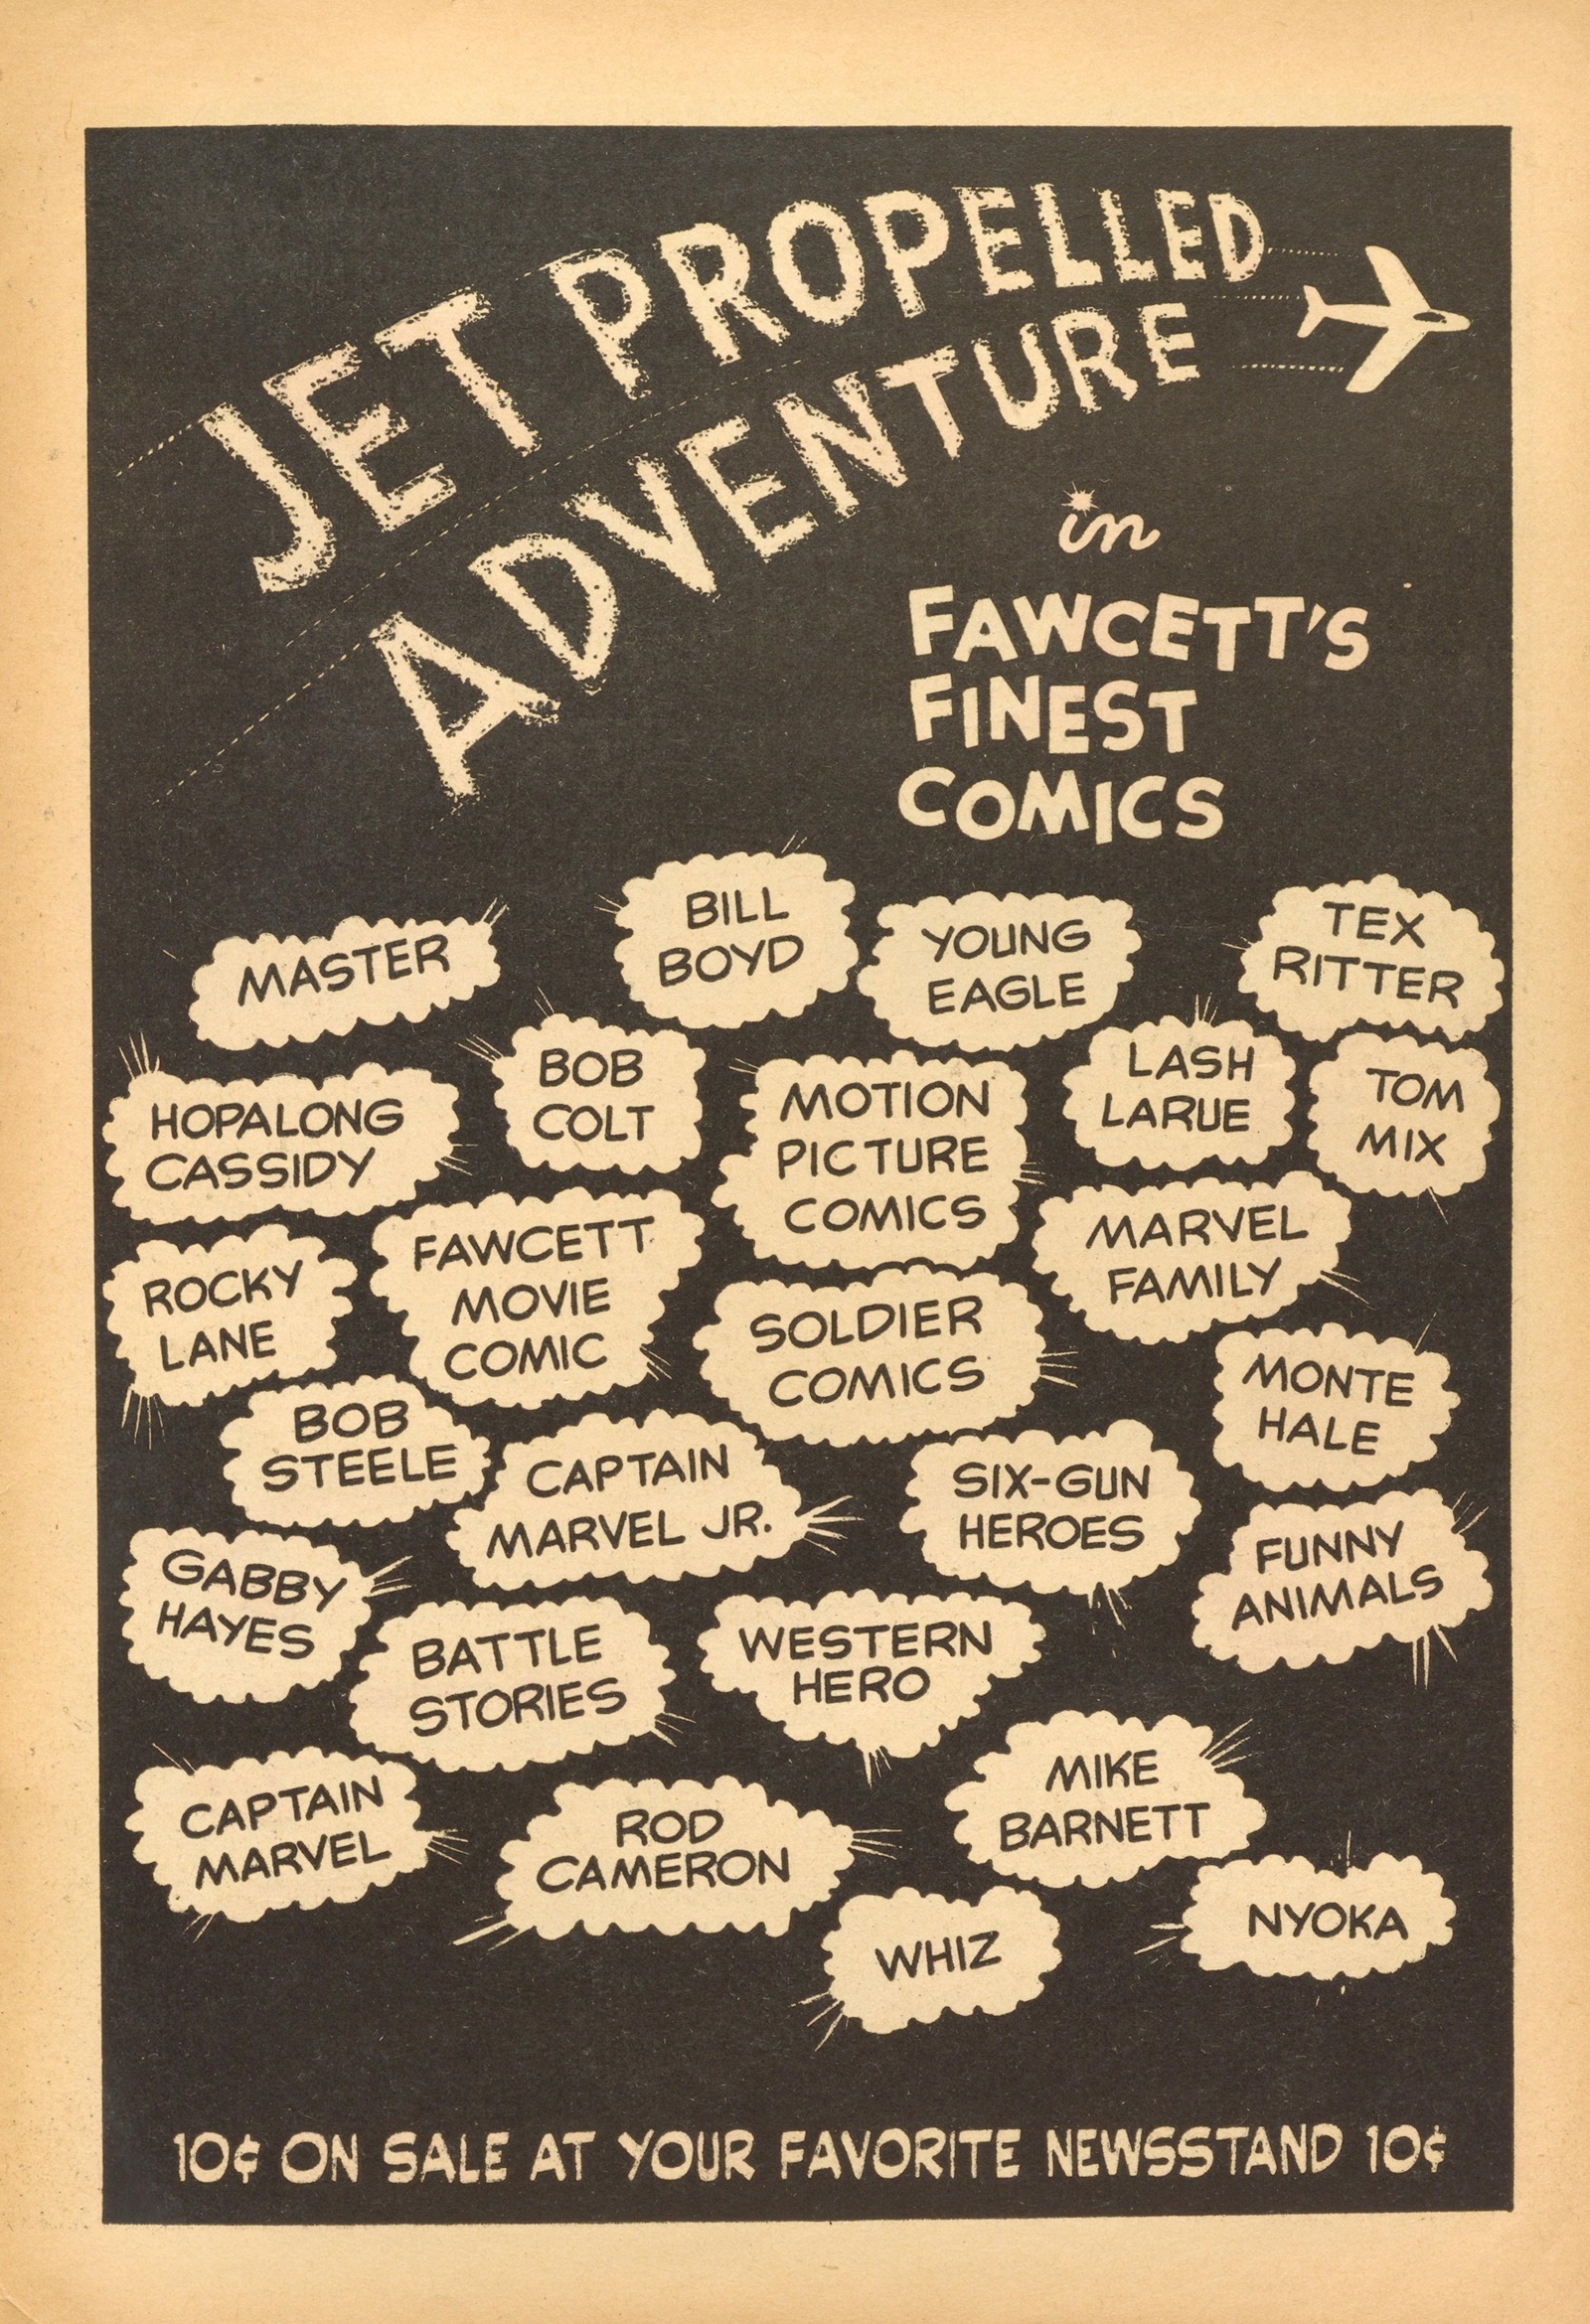 JET PROPELLED
ADVENTURE
in
FAWCETT'S
FINEST
COMICS
MASTER
BILL
BOYD
YOUNG
EAGLE
TEX
RITTER
HOPALONG
CASSIDY
BOB
COLT
MOTION
PICTURE
COMICS
LASH
LARUE
TOM
MIX
ROCKY
LANE
FAWCETT
MOVIE
COMIC
SOLDIER
COMICS
MARVEL
FAMILY
MONTE
HALE
BOB
STEELE
CAPTAIN
MARVEL JR.
SIX-GUN
HEROES
FUNNY
ANIMALS
GABBY
HAYES
BATTLE
STORIES
WESTERN
HERO
CAPTAIN
MARVEL
ROD
CAMERON
MIKE
BARNETT
WHIZ
NYOKA
10¢ ON SALE AT YOUR FAVORITE NEWSSTAND 10¢